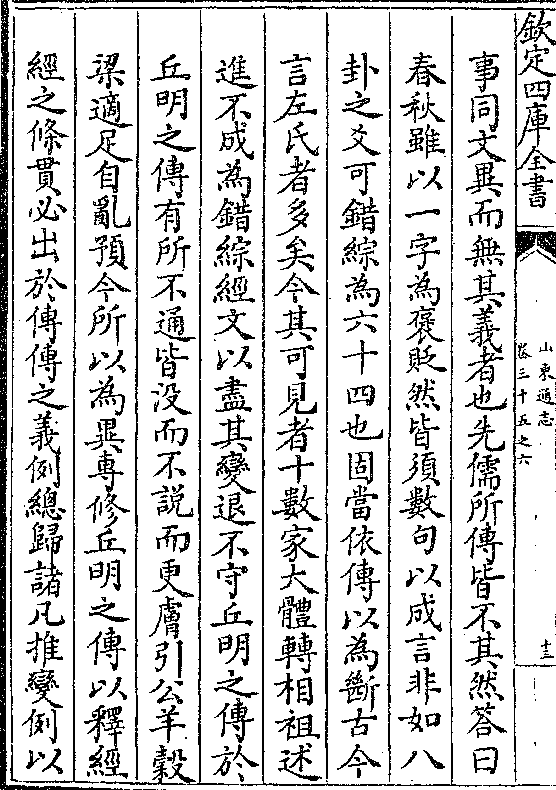 欽定四庫全書
山東通志
卷三十五之六
十三
事同文異而無其義者也先儒所傳皆不其然答曰
春秋雖以一字為褒貶然皆須數句以成言非如八
卦之爻可錯綜為六十四也固當依傳以為斷古今
言左氏者多矣今其可見者十數家大體轉相祖述
進不成為錯綜經文以盡其變退不守丘明之傳於
丘明之傳有所不通皆没而不說而更膚引公羊穀
梁適足自亂預今所以為異專修丘明之傳以釋經
經之條貫必出於傳傳之義例總歸諸凡推變例以